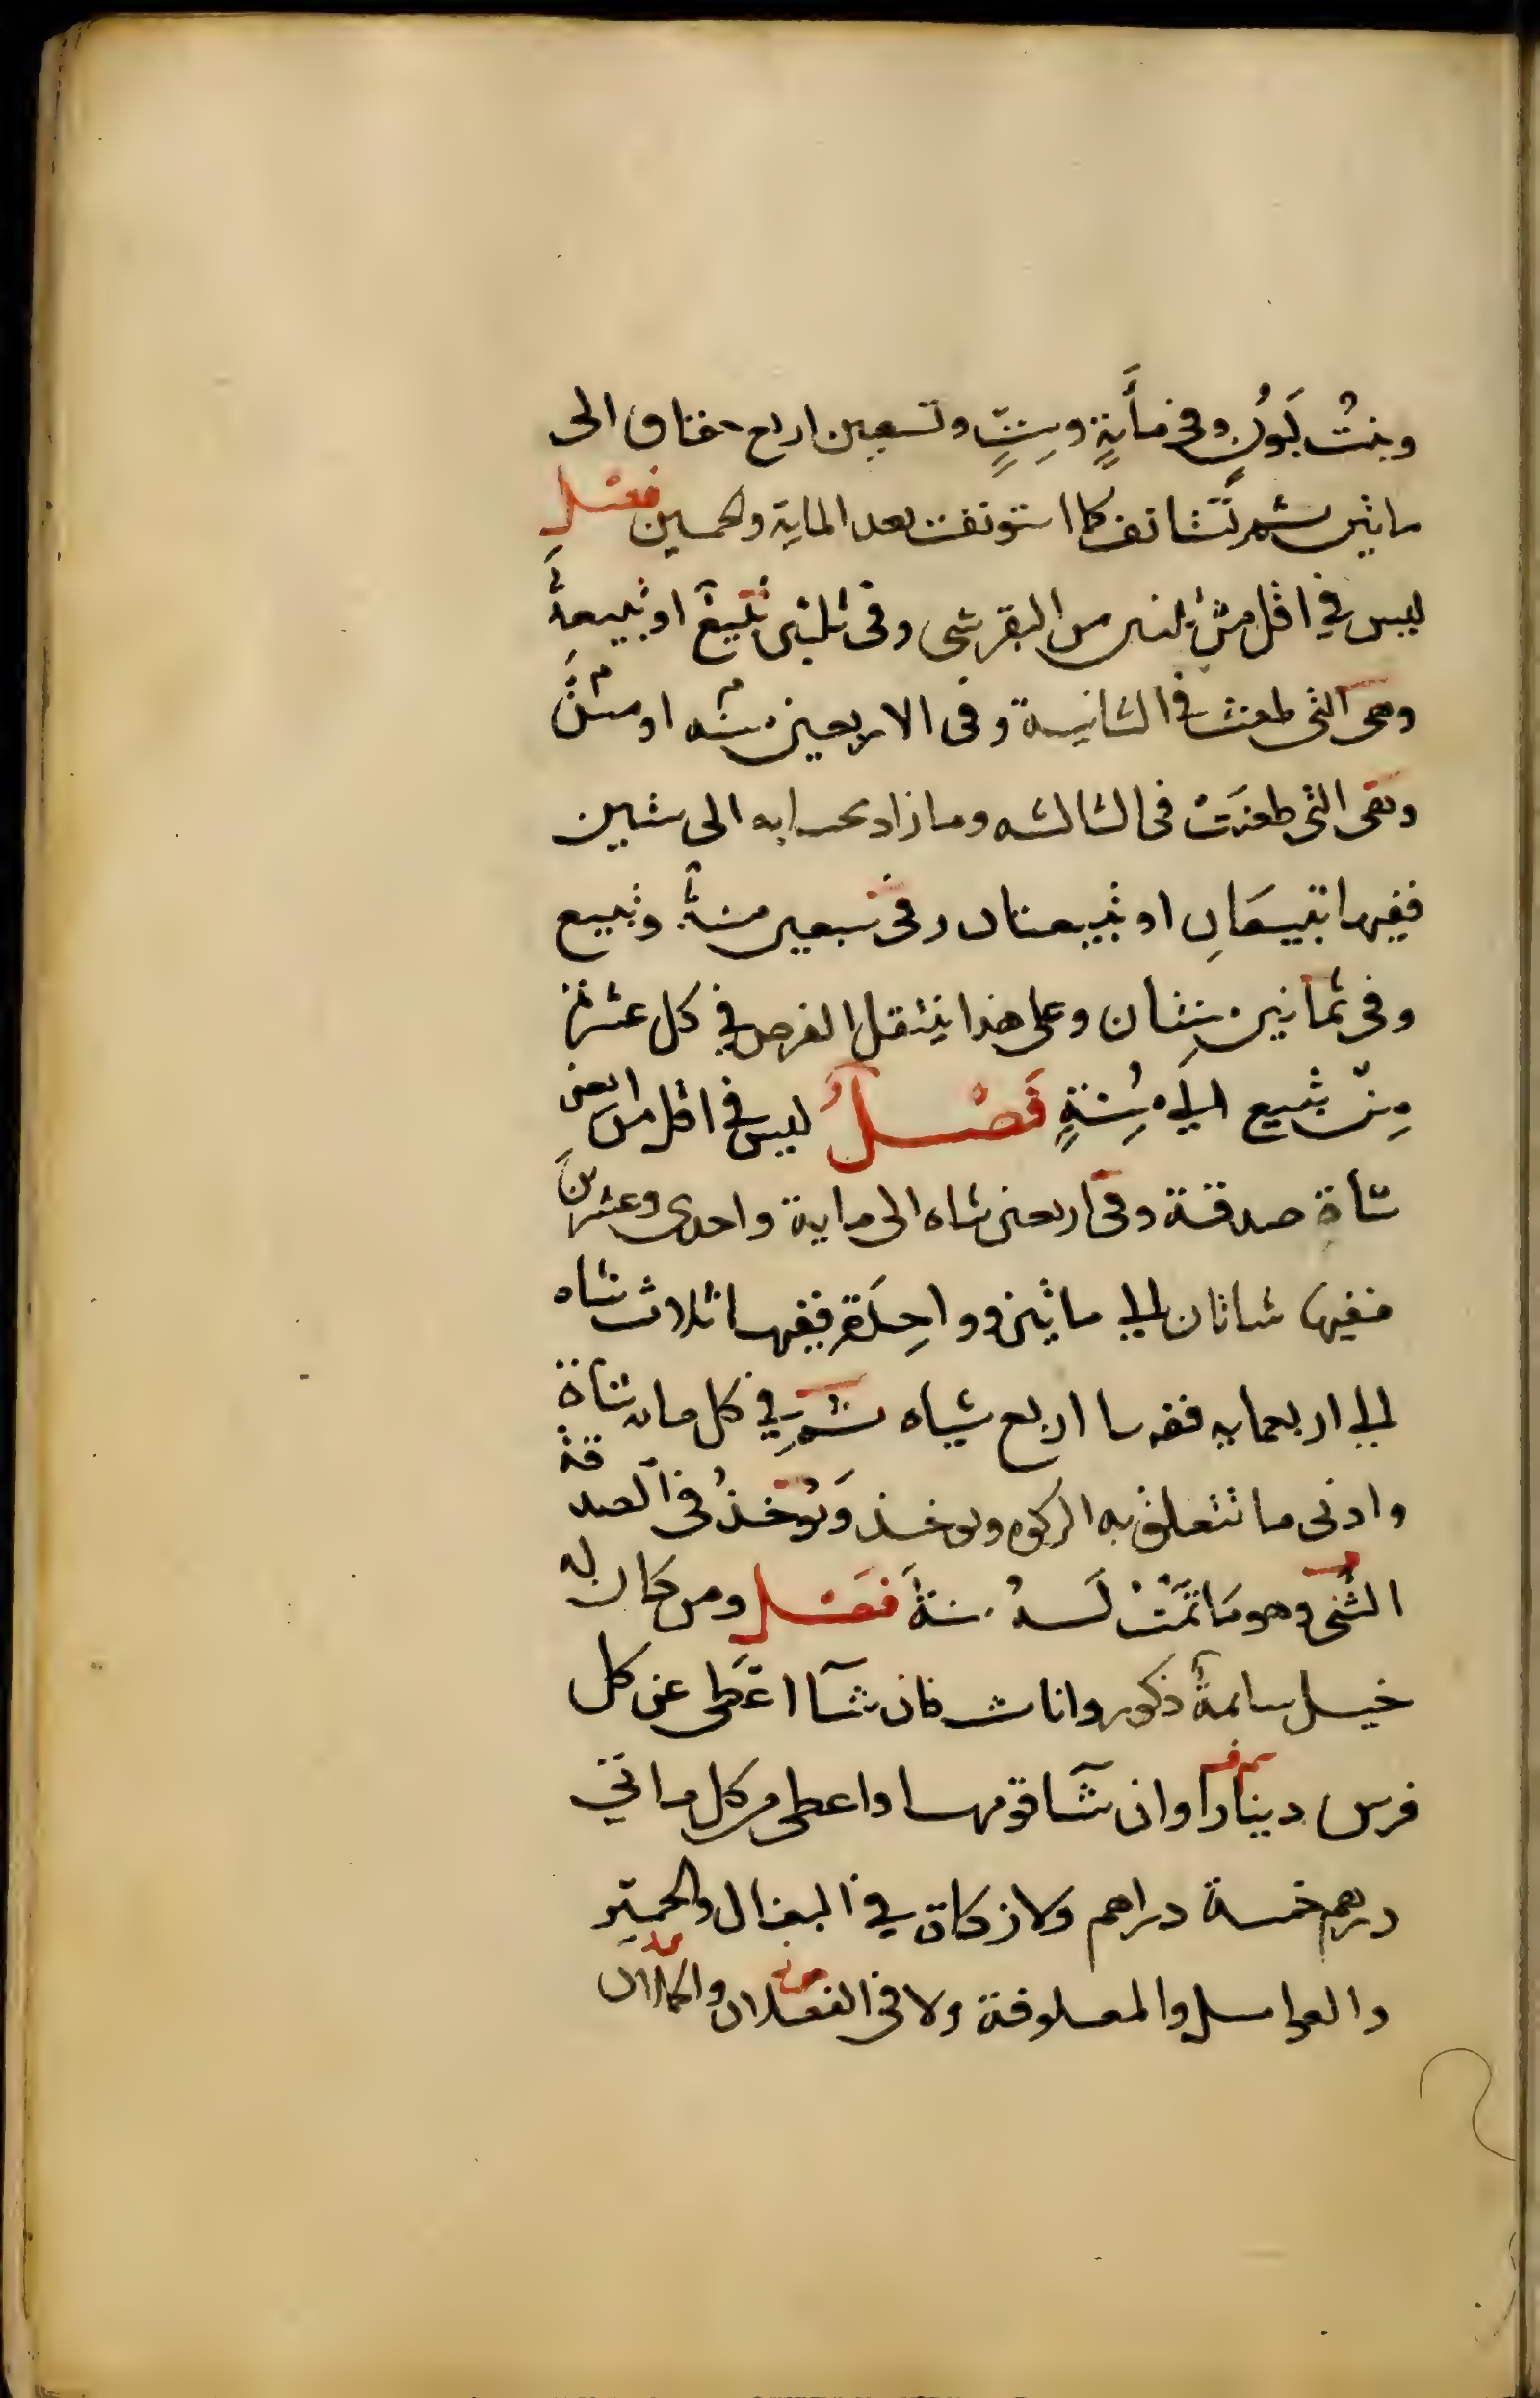 وبنتُ لَبُونٍ وفي مأيةٍ وسِتٍّ وتسعين اربع حقاق الى
مايتين ثم تستانف كما استونفت بعد الماية والخمسين فصل
ليس في اقل من ثلثين من البقر شي وفي ثلثين تبيعٌ او تبيعةٌ
وهي التي طعنت في الثانية وفي الاربعين مسنه او مسنٌّ
وهي التي طعنَتْ في الثالثه وما زاد بحسابه الى ستين
ففيها تبيعَانِ او تبيعتان وفي سبعين مسنةٌ وتبيع
وفي ثمانين مسِنتان وعلى هذا ينتقل الفرض في كل عشرة
مِنْ تبيع الي مُسِنةٍ فَصْلٌ ليس في اقل من اربعين
شاة صدقة وفي اربعين شاه الى ماية واحدى وعشرينَ
ففيها شاتان الي مايتين وواحِدَة ففيها ثلاث شاه
الي اربعمايه ففيها اربع شياه ثُمَّ في كل مايه شاة
وادنى ما تتعلق به الزكوه ويوخذ وَيُوخذُ في الصدقة
الثني وهو مَا تمَّتْ لَهُ سنةٌ فصْل ومن كان له
خيل سايمةٌ ذكور واناث فان شآ اعْطَى عن كل
فرس دينارا وان شآ قومها واعطى من كل مائتي
درهم خمسة دراهم ولا زكاة في البغال والحمير
والعوامل والمعلوفة ولا في الفصلان والحملان